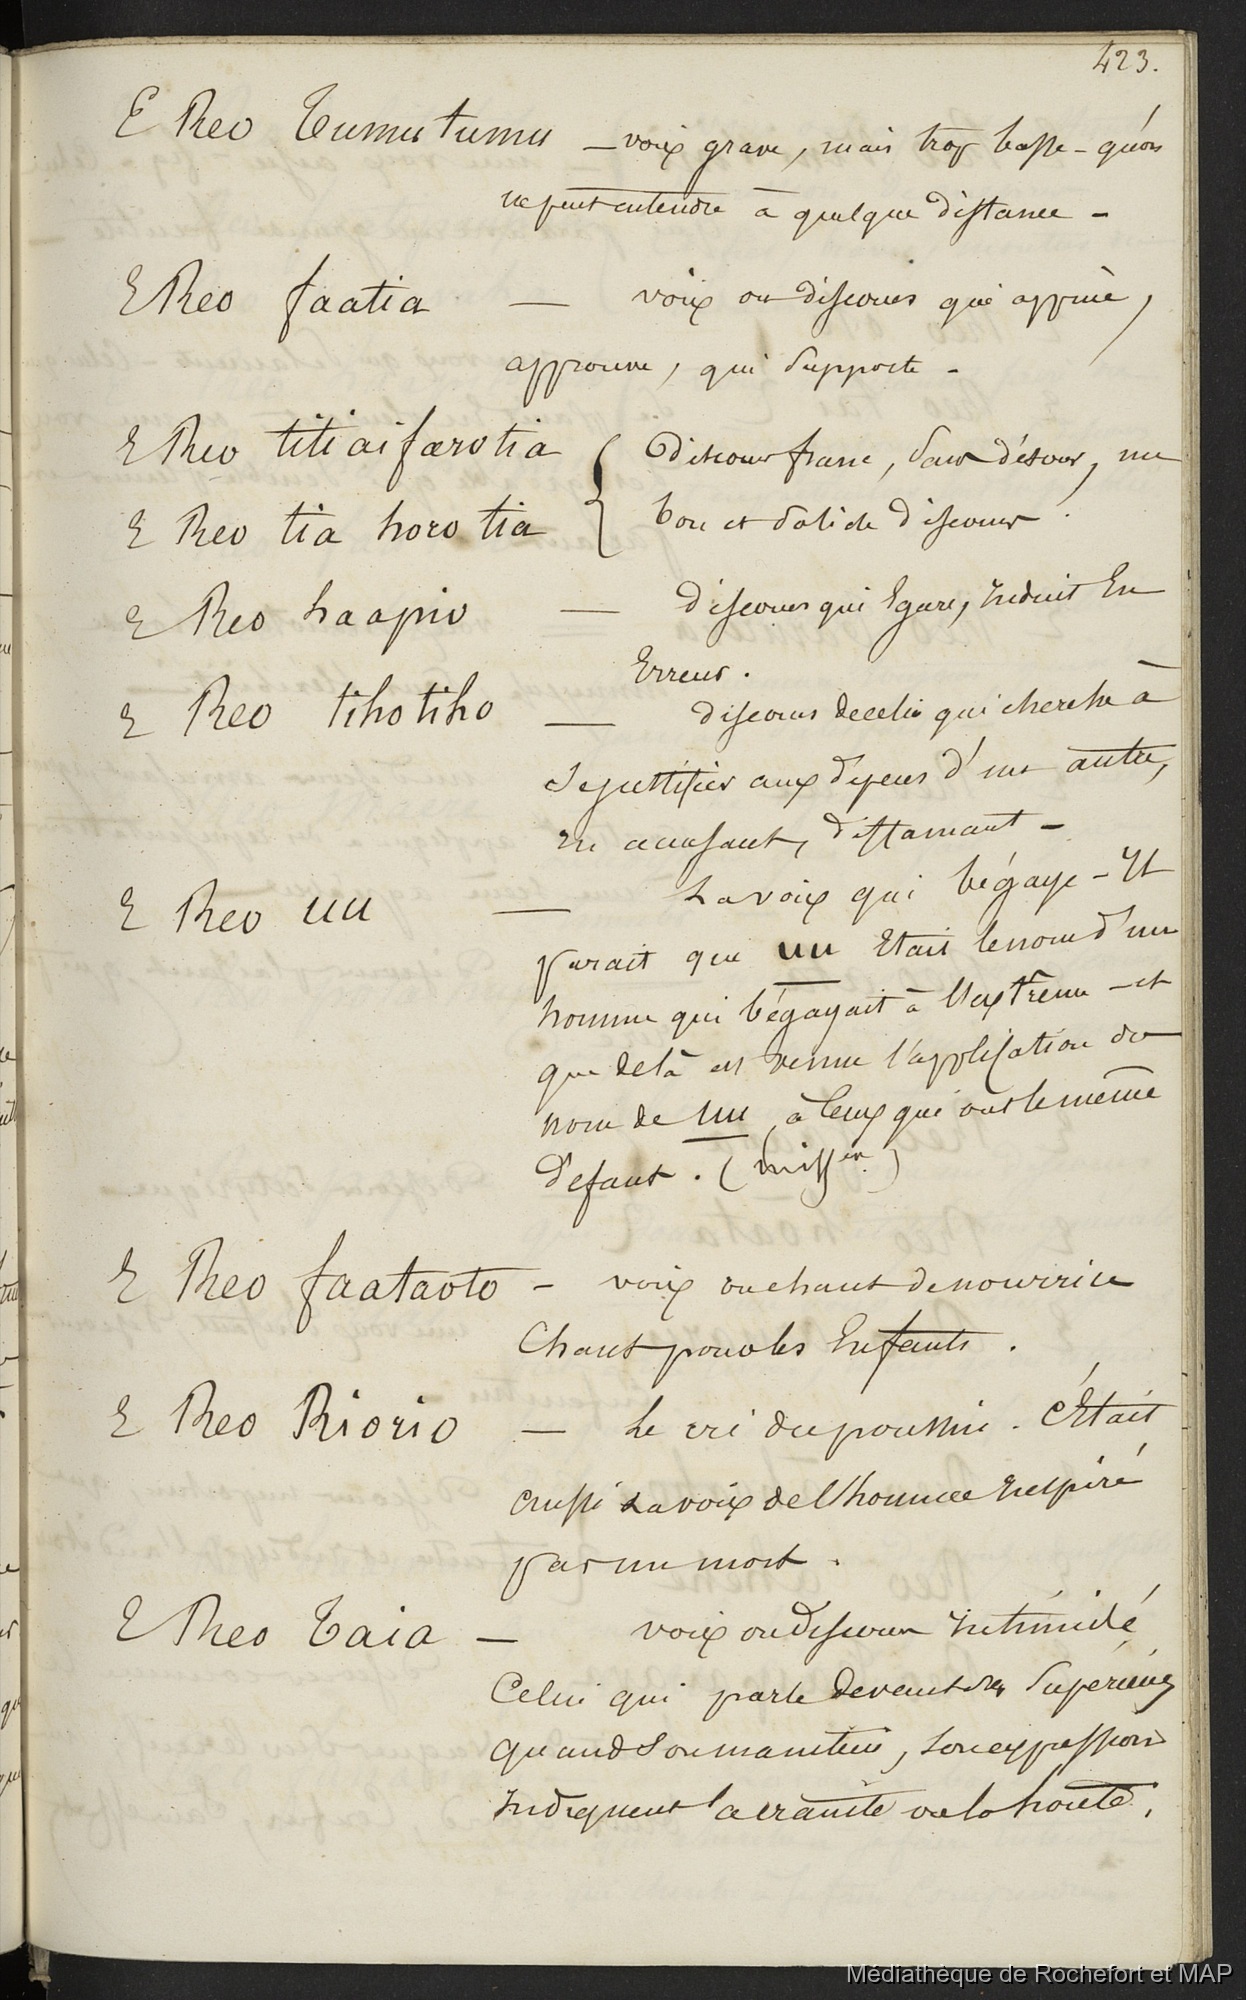 423.
E Reo Tumu tumu — voix grave, mais trop basse - qu'on
ne peut entendre à quelque distance -
E Reo faatia — voix ou discours qui appuie,
approuve, qui supporte -
E Reo titiaifarotia { Discours franc, sans détour, un
E Reo tia horo tia bon et solide discours.
E Reo haapio — discours qui Egare, Induit En
Erreur.
E Reo tihotiho — discours de celui qui cherche à
se justifier aux dépens d'un autre,
en accusant, diffamant -
E Reo uu — La voix qui bégaye - Il
parait que uu Etait le nom d'un
homme qui bégayait à l'Extrême - et
que de là est venu l'application du
nom de uu à Ceux qui ont le même
défaut. (miss.re)
E Reo faataoto - voix ou chant de nourrice
Chant pour les Enfants.
E Reo Riorio — Le cri du poussin. C'Etait
aussi La voix de l'homme Inspiré
par un mort.
E Reo Taia — voix ou discours Intimidé
Celui qui parle devant des Supérieurs
quand son maintien, son expression
Indiquent la crainte ou la honte.
Médiathèque de Rochefort et MAP